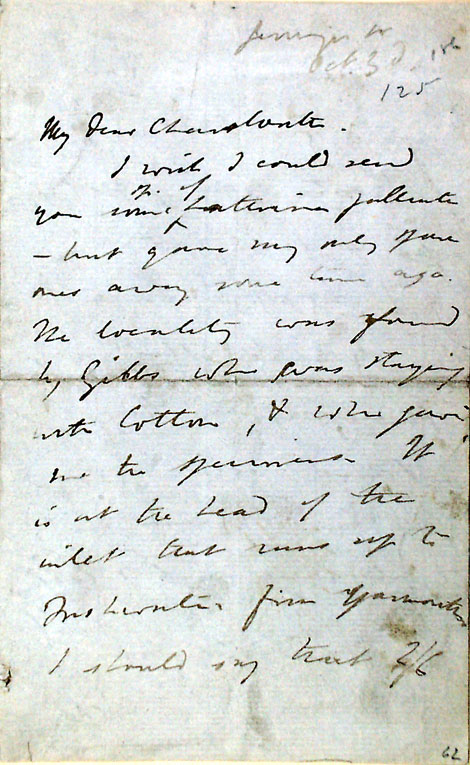 Jermyn St
Oct. 3d
125
My dear Charlesworth.
I wish I could send
you some sp. of Lattorina
— but gave my only spare
ones away some time ago.
The locality was found
by Gibbs who was staying
with Cotton, & who gave
me the specimens. It
is at the head of the
inlet that runs up to
Freshwater from Yarmouth.
I should say that 2/6
62